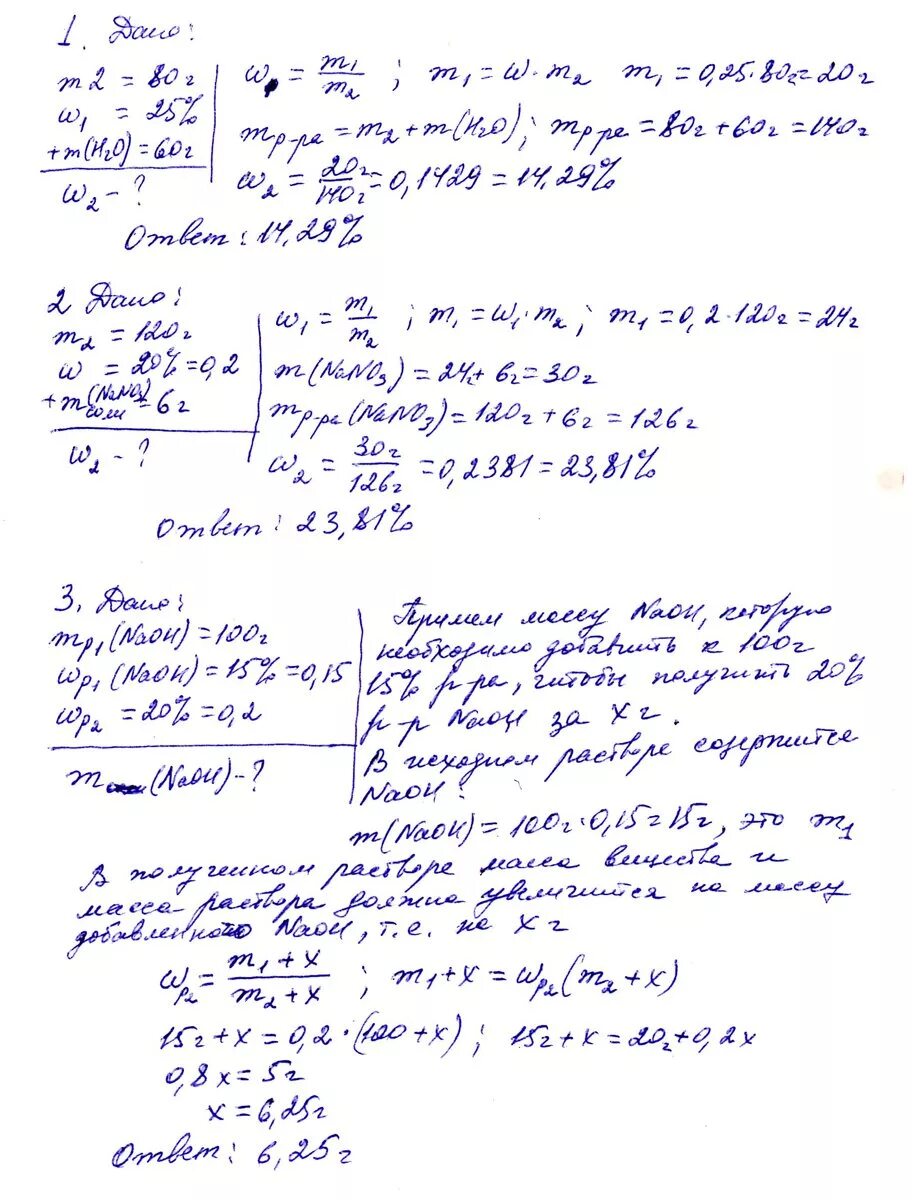 1. Дано:
m2 = 80г
ω₁ = 25%
+m(H₂O) = 60г
ω₂ - ?
ω = m₁/m₂ ; m₁ = ω · m₂ m₁ = 0,25·80г = 20г
mр-ра = m₂ + m(H₂O); mр-ра = 80г + 60г = 140г
ω₂ = 20г/140г = 0,1429 = 14,29%
Ответ: 14,29%
2 Дано:
m₂ = 120г
ω = 20% = 0,2
+m(NaNO₃) соли = 6г
ω₂ - ?
ω₁ = m₁/m₂ ; m₁ = ω₁·m₂ ; m₁ = 0,2·120г = 24г
m(NaNO₃) = 24г + 6г = 30г
mр-ра(NaNO₃) = 120г + 6г = 126г
ω₂ = 30г/126г = 0,2381 = 23,81%
Ответ: 23,81%
3. Дано:
mр₁(NaOH) = 100г
ωр₁(NaOH) = 15% = 0,15
ωр₂ = 20% = 0,2
m(NaOH) - ?
Примем массу NaOH, которую
необходимо добавить к 100г
15% р-ра, чтобы получить 20%
р-р NaOH за x г.
В исходном растворе содержится
NaOH:
m(NaOH) = 100г·0,15 = 15г, это m₁
В полученном растворе масса вещества и
масса раствора должна увеличится на массу
добавленного NaOH, т.е. на x г
ωр₂ = m₁ + x/m₂ + x ; m₁ + x = ωр₂(m₂ + x)
15г + x = 0,2·(100 + x) ; 15г + x = 20г + 0,2x
0,8x = 5г
x = 6,25г
Ответ: 6,25г